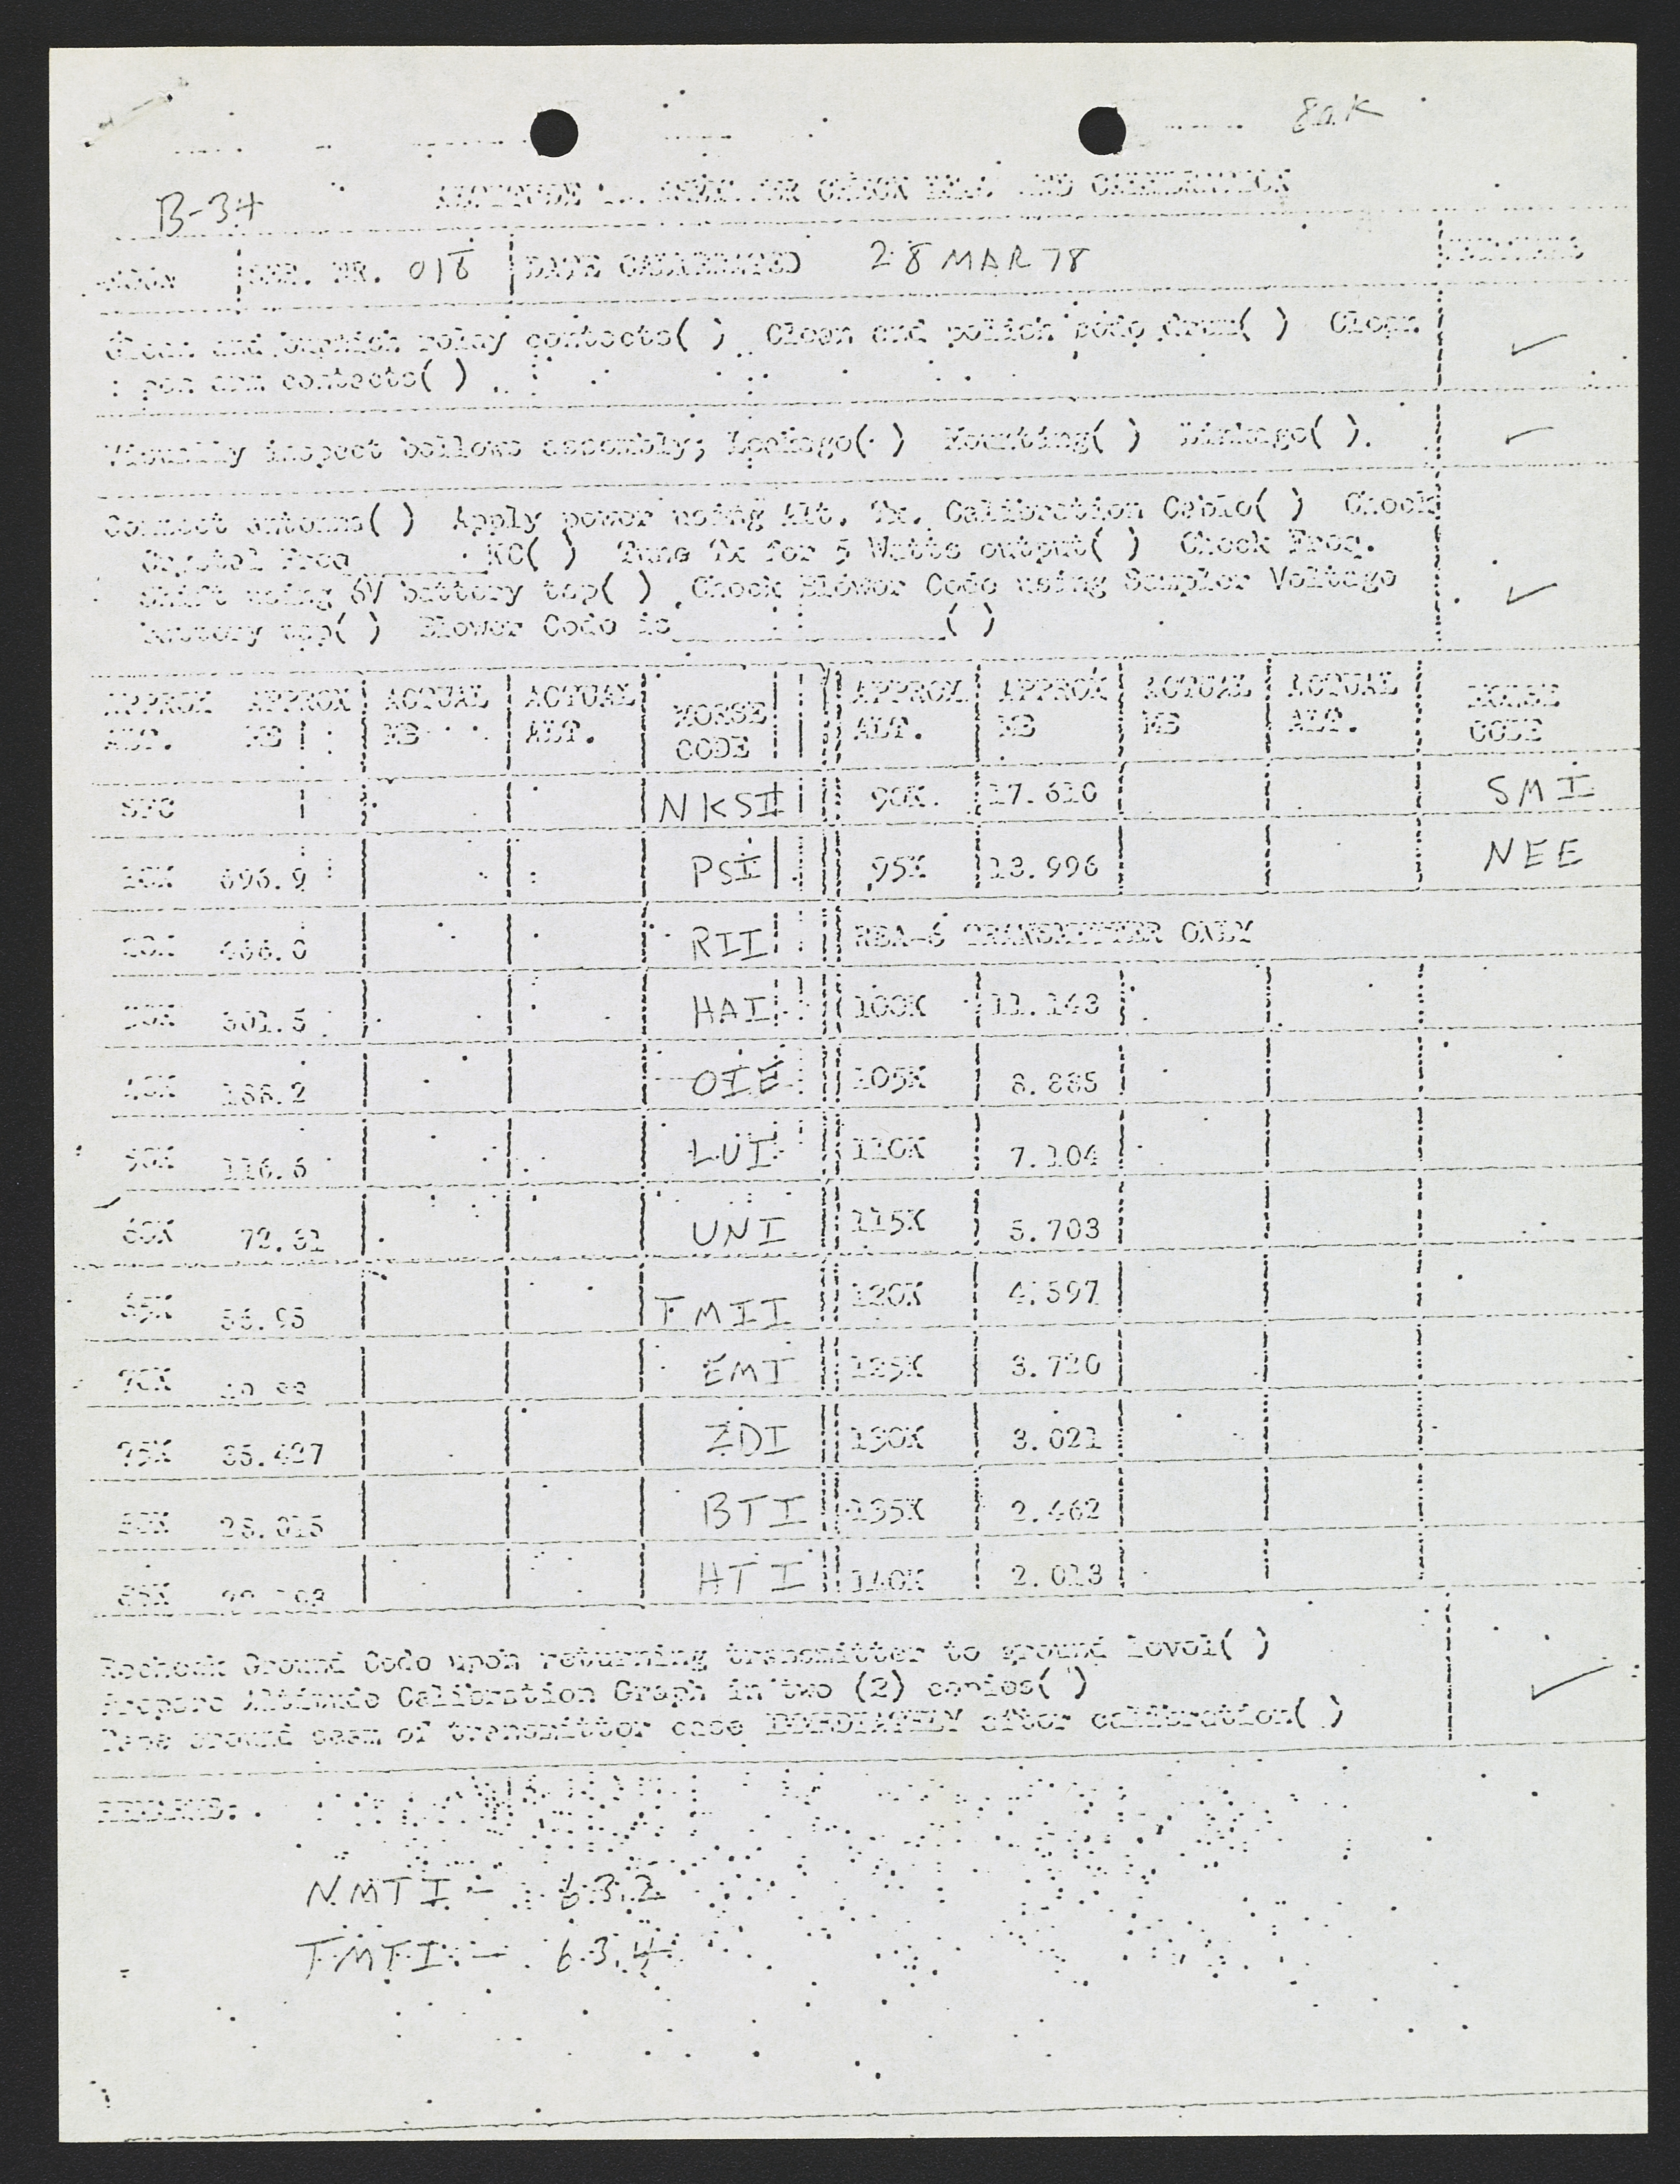 80K
B-34
ALTITUDE CHECK AND CALIBRATION
SER. NR. 018 DATE CALIBRATED 28 MAR 78
Clean and burnish relay contacts( ) Clean and polish code drum( ) Clean
pen arm contacts( )
Visually inspect bellows assembly; Leakage( ) Mounting( ) Linkage( ).
Connect antenna( ) Apply power using Alt. Tx. Calibration Cable( ) Check
Crystal Freq KC( ) Tune Tx for 5 Watts output( ) Check Freq.
shift using 6V battery tap( ) Check Blower Code using Sampler Voltage
battery tap( ) Blower Code is ( )
APPROX ALT. APPROX MB ACTUAL MB ACTUAL ALT. MORSE CODE APPROX ALT. APPROX MB ACTUAL MB ACTUAL ALT. MORSE CODE
SFC NKSI 90K 17.610 SMI
10K 696.9 PSI 95K 13.996 NEE
20K 466.0 RII RBA-6 TRANSMITTER ONLY
30K 301.5 HAI 100K 11.143
40K 188.2 OIE 105K 8.885
50K 116.6 LUI 110K 7.104
60K 72.31 UNI 115K 5.703
65K 56.95 TMII 120K 4.597
70K EMI 125K 3.720
75K 35.427 ZDI 130K 3.021
80K 28.015 BTI 135K 2.462
85K HTI 140K 2.013
Recheck Ground Code upon returning transmitter to ground level( )
Prepare Altitude Calibration Graph in two (2) copies( )
Tape around seam of transmitter case IMMEDIATELY after calibration( )
REMARKS:
NMTI - 63.2
TMTI - 63.4